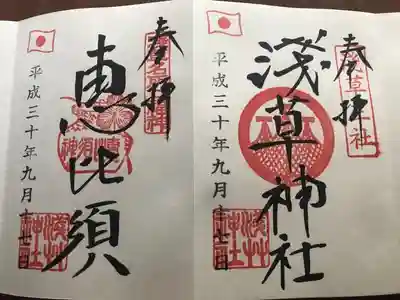 奉拝
淺草神社
平成三十年九月十七日
奉拝
恵比須
平成三十年九月十七日